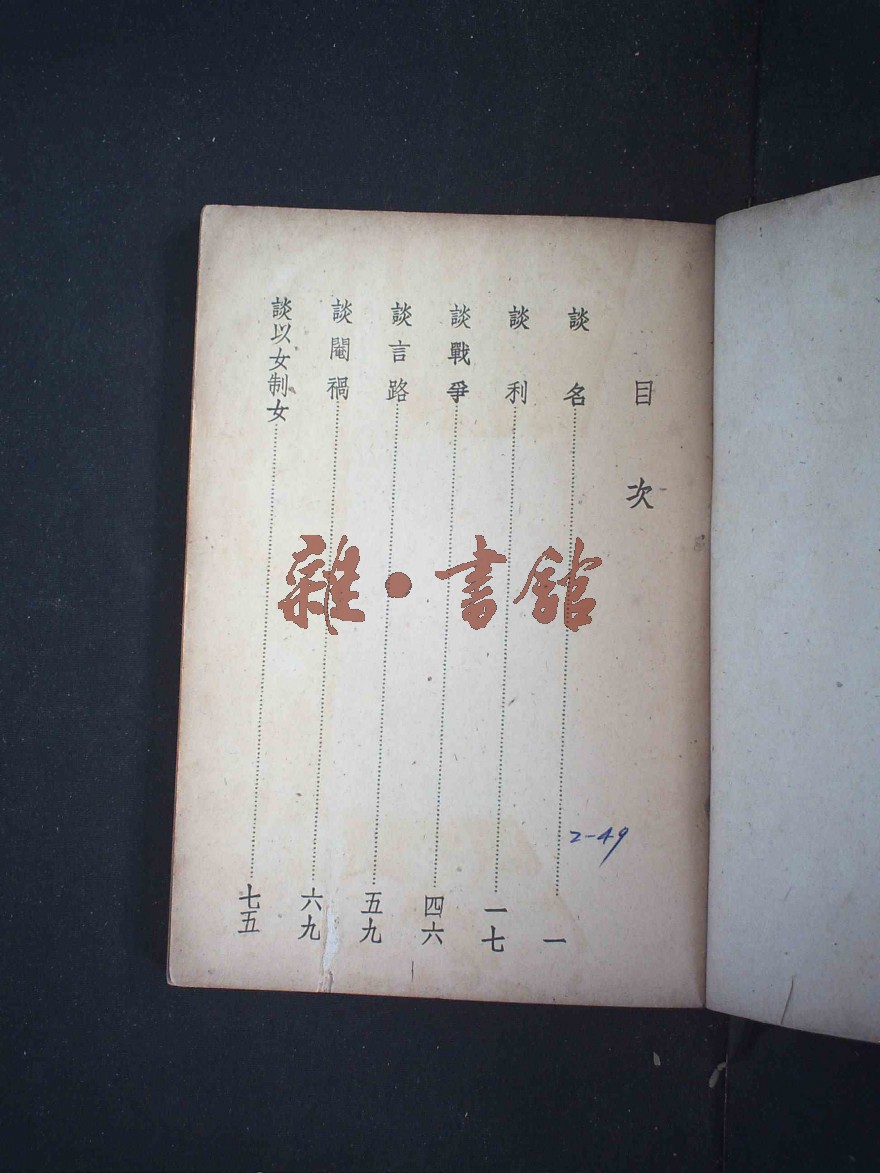 目次
談名……一
談利……一七
談戰爭……四六
談言路……五九
談閹禍……六九
談以女制女……七五
2-49
雜·書館